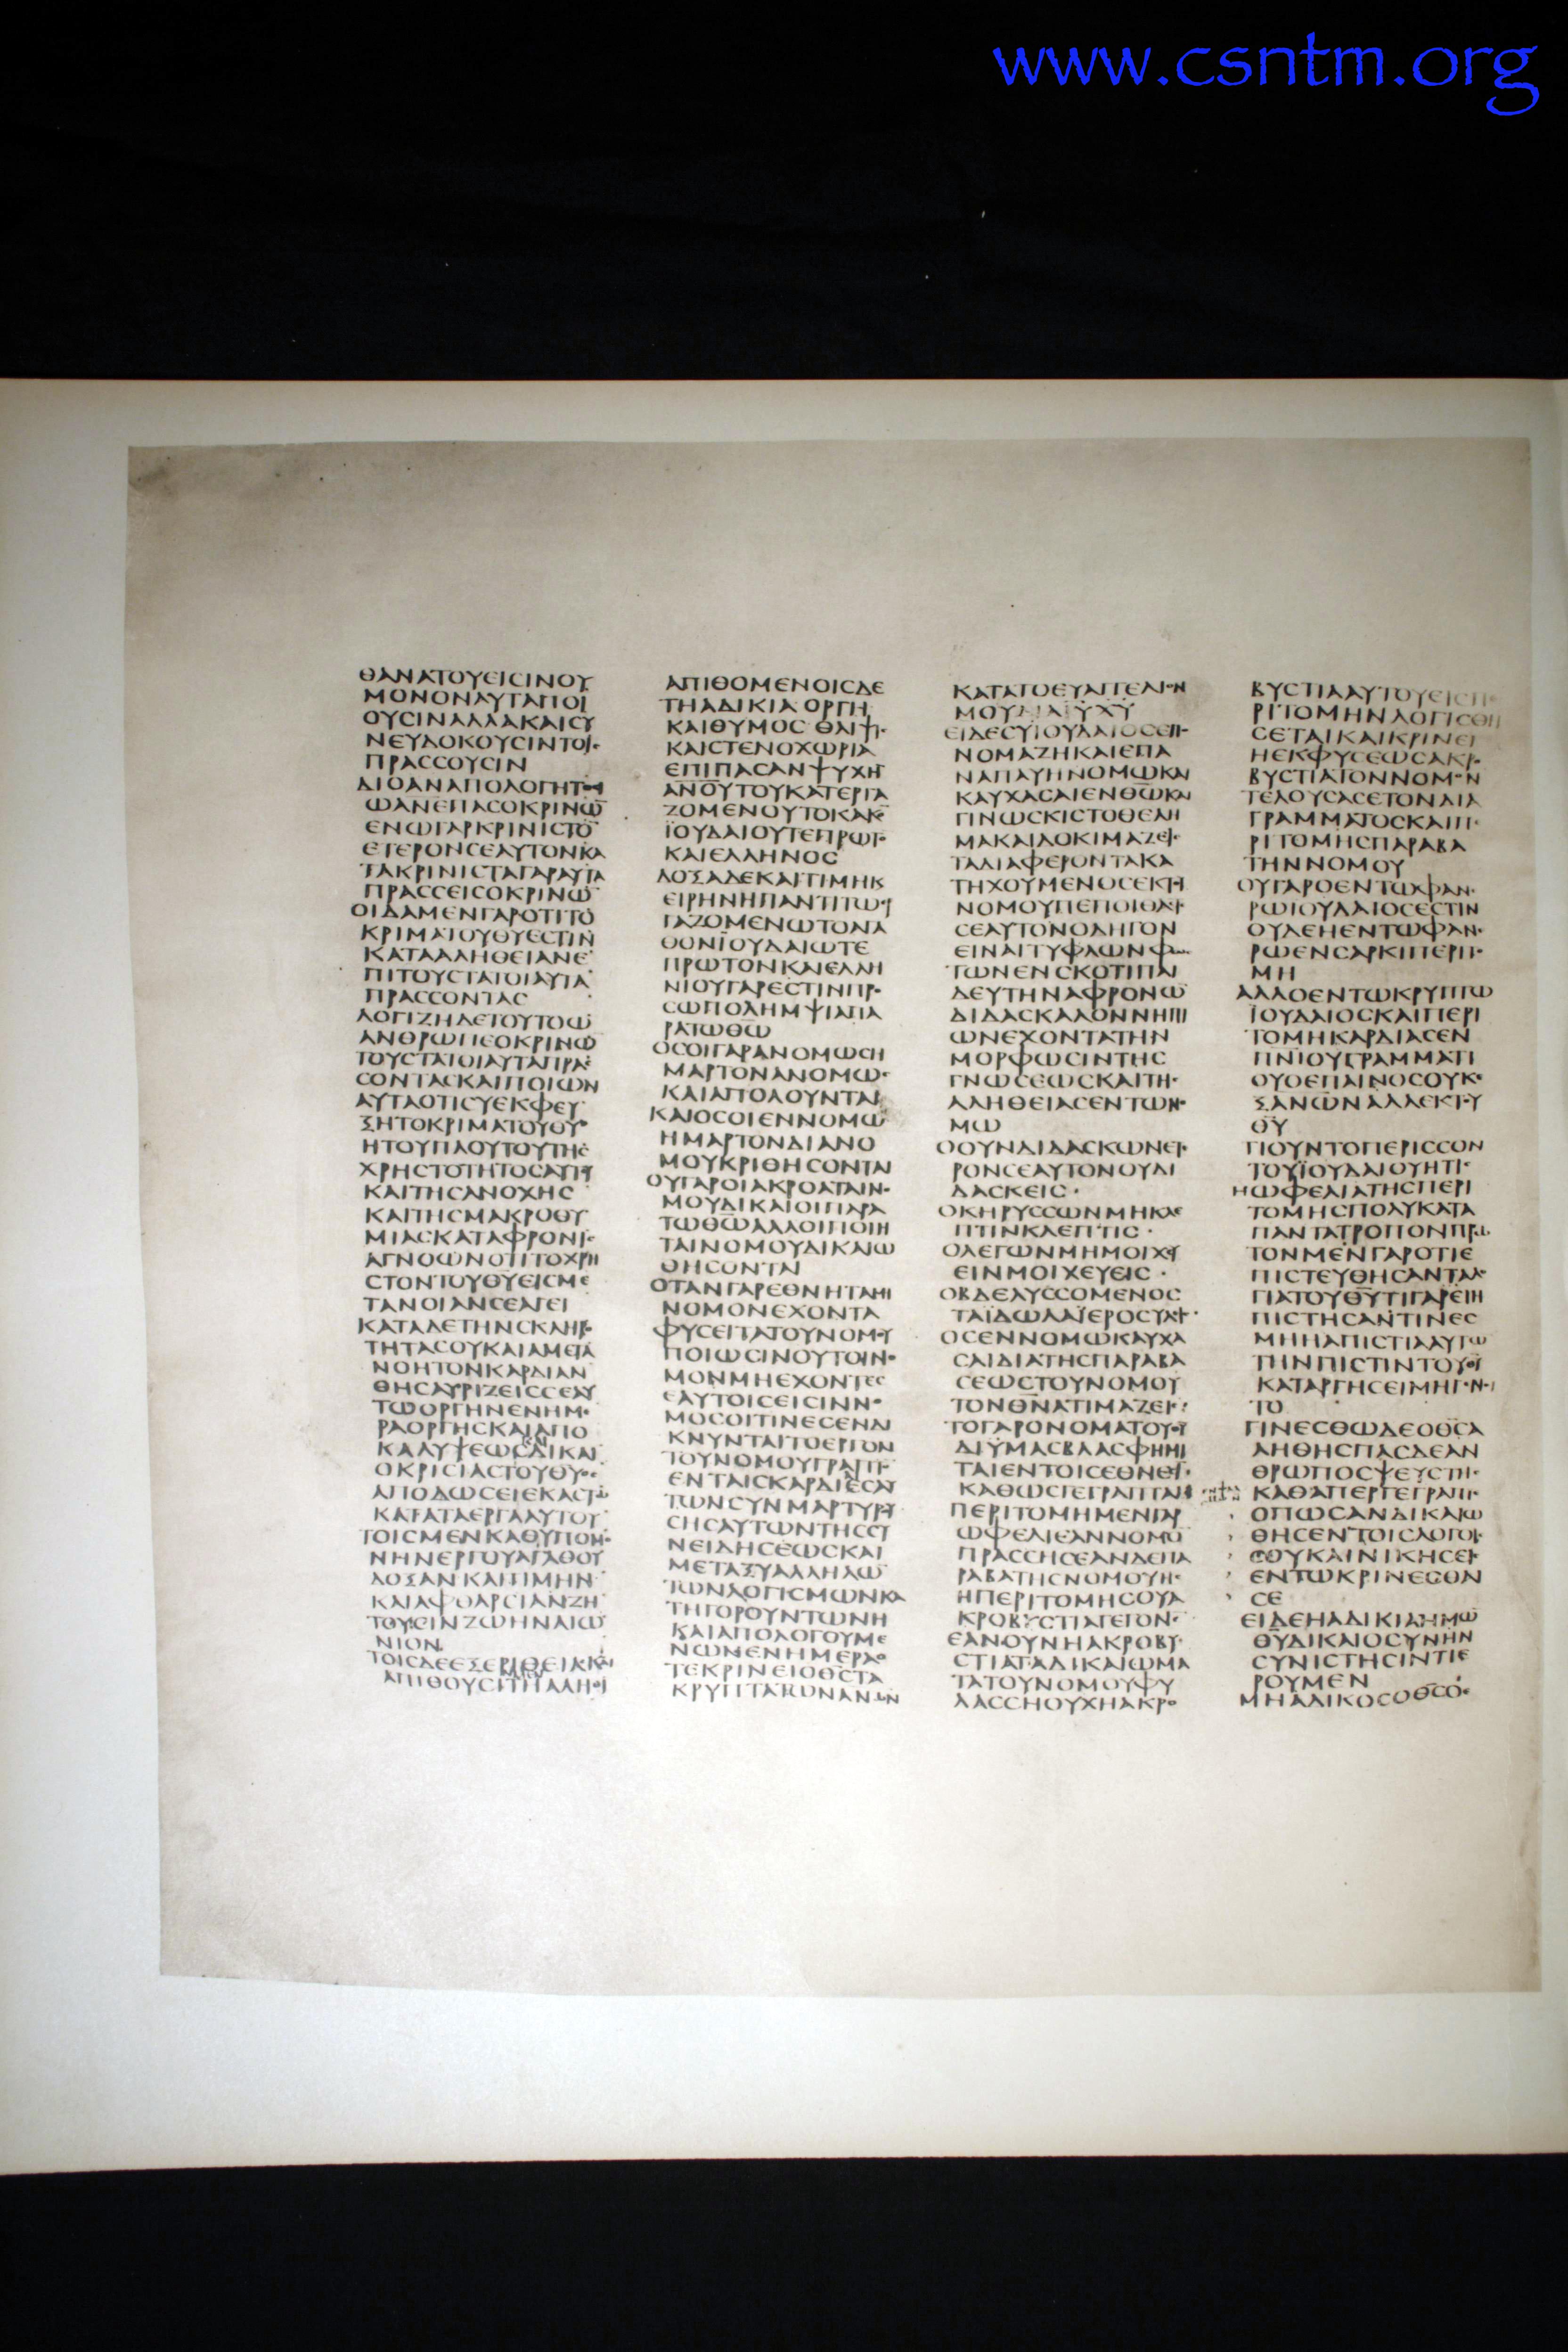 www.csntm.org
ΘΑΝΑΤΟΥΕΙCΙΝΟΥ
ΜΟΝΟΝΑΥΤΑΠΟΙ
ΟΥCΙΝΑΛΛΑΚΑΙCΥ
ΝΕΥΔΟΚΟΥCΙΝΤΟΙC
ΠΡΑCCΟΥCΙΝ
ΔΙΟΑΝΑΠΟΛΟΓΗΤΟC
ΩΑΝΕΠΑCΟΚΡΙΝΩ̅
ΕΝΩΓΑΡΚΡΙΝΙCΤΟ̅
ΕΤΕΡΟΝCΕΑΥΤΟΝΚΑ
ΤΑΚΡΙΝΙCΤΑΓΑΡΑΥΤΑ
ΠΡΑCCΕΙCΟΚΡΙΝΩ̅
ΟΙΔΑΜΕΝΓΑΡΟΤΙΤΟ
ΚΡΙΜΑΤΟΥΘΥΕCΤΙΝ
ΚΑΤΑΑΛΗΘΕΙΑΝΕ
ΠΙΤΟΥCΤΑΤΟΙΑΥΤΑ
ΠΡΑCCΟΝΤΑC
ΛΟΓΙΖΗΔΕΤΟΥΤΟΩ
ΑΝΘΡΩΠΕΟΚΡΙΝΩ̅
ΤΟΥCΤΑΤΟΙΑΥΤΑΠΡΑC
CΟΝΤΑCΚΑΙΠΟΙΩΝ
ΑΥΤΑΟΤΙCΥΕΚΦΕΥ
ΞΗΤΟΚΡΙΜΑΤΟΥΘΥ
ΗΤΟΥΠΛΟΥΤΟΥΤΗC
ΧΡΗCΤΟΤΗΤΟCΑΥΤΟΥ
ΚΑΙΤΗCΑΝΟΧΗC
ΚΑΙΤΗCΜΑΚΡΟΘΥ
ΜΙΑCΚΑΤΑΦΡΟΝΙC
ΑΓΝΟΩΝΟΤΙΤΟΧΡΗ
CΤΟΝΤΟΥΘΥΕΙCΜΕ
ΤΑΝΟΙΑΝCΕΑΓΕΙ
ΚΑΤΑΔΕΤΗΝCΚΛΗΡΟ
ΤΗΤΑCΟΥΚΑΙΑΜΕΤΑ
ΝΟΗΤΟΝΚΑΡΔΙΑΝ
ΘΗCΑΥΡΙΖΕΙCCΕΑΥ
ΤΩΟΡΓΗΝΕΝΗΜΕ
ΡΑΟΡΓΗCΚΑΙΑΠΟ
ΚΑΛΥΨΕΩCΔΙΚΑΙ
ΟΚΡΙCΙΑCΤΟΥΘΥΟC
ΑΠΟΔΩCΕΙΕΚΑCΤΩ
ΚΑΤΑΤΑΕΡΓΑΑΥΤΟΥ
ΤΟΙCΜΕΝΚΑΘΥΠΟΜΟ
ΝΗΝΕΡΓΟΥΑΓΑΘΟΥ
ΔΟΞΑΝΚΑΙΤΙΜΗΝ
ΚΑΙΑΦΘΑΡCΙΑΝΖΗ
ΤΟΥCΙΝΖΩΗΝΑΙΩ
ΝΙΟΝ
ΤΟΙCΔΕΕΞΕΡΙΘΕΙΑΚΑΙ
ΑΠΙΘΟΥCΙΤΗΑΛΗΘΙ
ΑΠΙΘΟΜΕΝΟΙCΔΕ
ΤΗΑΔΙΚΙΑΟΡΓΗ
ΚΑΙΘΥΜΟCΘΛΙΨΙC
ΚΑΙCΤΕΝΟΧΩΡΙΑ
ΕΠΙΠΑCΑΝΨΥΧΗ̅
ΑΝΟΥΤΟΥΚΑΤΕΡΓΑ
ΖΟΜΕΝΟΥΤΟΚΑΚΟ̅
ΪΟΥΔΑΙΟΥΤΕΠΡΩΤΟ̅
ΚΑΙΕΛΛΗΝΟC
ΔΟΞΑΔΕΚΑΙΤΙΜΗΚ
ΕΙΡΗΝΗΠΑΝΤΙΤΩΕΡ
ΓΑΖΟΜΕΝΩΤΟΑΓΑ
ΘΟΝΪΟΥΔΑΙΩΤΕ
ΠΡΩΤΟΝΚΑΙΕΛΛΗ
ΝΙΟΥΓΑΡΕCΤΙΝΠΡΟ
CΩΠΟΛΗΜΨΙΑΠΑ
ΡΑΤΩΘΩ
ΟCΟΙΓΑΡΑΝΟΜΩCΗ
ΜΑΡΤΟΝΑΝΟΜΩC
ΚΑΙΑΠΟΛΟΥΝΤΑΙ
ΚΑΙΟCΟΙΕΝΝΟΜΩ
ΗΜΑΡΤΟΝΔΙΑΝΟ
ΜΟΥΚΡΙΘΗCΟΝΤΑΙ
ΟΥΓΑΡΟΙΑΚΡΟΑΤΑΙΝΟ
ΜΟΥΔΙΚΑΙΟΙΠΑΡΑ
ΤΩΘΩΑΛΛΟΙΠΟΙΗ
ΤΑΙΝΟΜΟΥΔΙΚΑΙΩ
ΘΗCΟΝΤΑΙ
ΟΤΑΝΓΑΡΕΘΝΗΤΑΜΗ
ΝΟΜΟΝΕΧΟΝΤΑ
ΦΥCΕΙΤΑΤΟΥΝΟΜΟΥ
ΠΟΙΩCΙΝΟΥΤΟΙΝΟ
ΜΟΝΜΗΕΧΟΝΤΕC
ΕΑΥΤΟΙCΕΙCΙΝΝΟ
ΜΟCΟΙΤΙΝΕCΕΝΔΙ
ΚΝΥΝΤΑΙΤΟΕΡΓΟΝ
ΤΟΥΝΟΜΟΥΓΡΑΠΤΟ
ΕΝΤΑΙCΚΑΡΔΙΑΙCΑΥ
ΤΩΝCΥΝΜΑΡΤΥΡΟΥ
CΗCΑΥΤΩΝΤΗCCΥ
ΝΕΙΔΗCΕΩCΚΑΙ
ΜΕΤΑΞΥΑΛΛΗΛΩ
ΤΩΝΛΟΓΙCΜΩΝΚΑ
ΤΗΓΟΡΟΥΝΤΩΝΗ
ΚΑΙΑΠΟΛΟΓΟΥΜΕ
ΝΩΝΕΝΗΜΕΡΑΟ
ΤΕΚΡΙΝΕΙΟΘCΤΑ
ΚΡΥΠΤΑΤΩΝΑΝΩΝ
ΚΑΤΑΤΟΕΥΑΓΓΕΛΙΟΝ
ΜΟΥΔΙΑΙΥΧΥ
ΕΙΔΕCΥΪΟΥΔΑΙΟCΕΠΟ
ΝΟΜΑΖΗΚΑΙΕΠΑ
ΝΑΠΑΥΗΝΟΜΩΚΑΙ
ΚΑΥΧΑCΑΙΕΝΘΩΚΑΙ
ΓΙΝΩCΚΙCΤΟΘΕΛΗ
ΜΑΚΑΙΔΟΚΙΜΑΖΕΙC
ΤΑΔΙΑΦΕΡΟΝΤΑΚΑ
ΤΗΧΟΥΜΕΝΟCΕΚΤΟΥ
ΝΟΜΟΥΠΕΠΟΙΘΑC
CΕΑΥΤΟΝΟΔΗΓΟΝ
ΕΙΝΑΙΤΥΦΛΩΝΦΩC
ΤΩΝΕΝCΚΟΤΙΠΑΙ
ΔΕΥΤΗΝΑΦΡΟΝΩ̅
ΔΙΔΑCΚΑΛΟΝΝΗΠΙ
ΩΝΕΧΟΝΤΑΤΗΝ
ΜΟΡΦΩCΙΝΤΗC
ΓΝΩCΕΩCΚΑΙΤΗC
ΑΛΗΘΕΙΑCΕΝΤΩΝΟ
ΜΩ
ΟΟΥΝΔΙΔΑCΚΩΝΕΤΕ
ΡΟΝCΕΑΥΤΟΝΟΥΔΙ
ΔΑCΚΕΙC·
ΟΚΗΡΥCCΩΝΜΗΚΛΕ
ΠΤΙΝΚΛΕΠΤΙC·
ΟΛΕΓΩΝΜΗΜΟΙΧΕΥ
ΕΙΝΜΟΙΧΕΥΕΙC·
ΟΒΔΕΛΥCCΟΜΕΝΟC
ΤΑΪΔΩΛΑΪΕΡΟCΥΛΙC
ΟCΕΝΝΟΜΩΚΑΥΧΑ
CΑΙΔΙΑΤΗCΠΑΡΑΒΑ
CΕΩCΤΟΥΝΟΜΟΥ
ΤΟΝΘΝΑΤΙΜΑΖΕΙC
ΤΟΓΑΡΟΝΟΜΑΤΟΥΘΥ
ΔΙΥΜΑCΒΛΑCΦΗΜΙ
ΤΑΙΕΝΤΟΙCΕΘΝΕCΙ
ΚΑΘΩCΓΕΓΡΑΠΤΑΙ
ΠΕΡΙΤΟΜΗΜΕΝΓΑΡ
ΩΦΕΛΙΕΑΝΝΟΜΟ̅
ΠΡΑCCΗCΕΑΝΔΕΠΑ
ΡΑΒΑΤΗCΝΟΜΟΥΗC
ΗΠΕΡΙΤΟΜΗCΟΥΑ
ΚΡΟΒΥCΤΙΑΓΕΓΟΝΕ
ΕΑΝΟΥΝΗΑΚΡΟΒΥ
CΤΙΑΤΑΔΙΚΑΙΩΜΑ
ΤΑΤΟΥΝΟΜΟΥΦΥ
ΛΑCCΗΟΥΧΗΑΚΡΟ
ΒΥCΤΙΑΑΥΤΟΥΕΙCΠΕ
ΡΙΤΟΜΗΝΛΟΓΙCΘΗ
CΕΤΑΙΚΑΙΚΡΙΝΕΙ
ΗΕΚΦΥCΕΩCΑΚΡΟ
ΒΥCΤΙΑΤΟΝΝΟΜΟΝ
ΤΕΛΟΥCΑCΕΤΟΝΔΙΑ
ΓΡΑΜΜΑΤΟCΚΑΙΠΕ
ΡΙΤΟΜΗCΠΑΡΑΒΑ
ΤΗΝΝΟΜΟΥ
ΟΥΓΑΡΟΕΝΤΩΦΑΝΕ
ΡΩΙΟΥΔΑΙΟCΕCΤΙΝ
ΟΥΔΕΗΕΝΤΩΦΑΝΕ
ΡΩΕΝCΑΡΚΙΠΕΡΙΤΟ
ΜΗ
ΑΛΛΟΕΝΤΩΚΡΥΠΤΩ
ΪΟΥΔΑΙΟCΚΑΙΠΕΡΙ
ΤΟΜΗΚΑΡΔΙΑCΕΝ
ΠΝΙΟΥΓΡΑΜΜΑΤΙ
ΟΥΟΕΠΑΙΝΟCΟΥΚΕ
ΞΑΝΩΝΑΛΛΕΚΤΟΥ
ΘΥ
ΤΙΟΥΝΤΟΠΕΡΙCCΟΝ
ΤΟΥΪΟΥΔΑΙΟΥΗΤΙC
ΗΩΦΕΛΙΑΤΗCΠΕΡΙ
ΤΟΜΗCΠΟΛΥΚΑΤΑ
ΠΑΝΤΑΤΡΟΠΟΝΠΡΩ
ΤΟΝΜΕΝΓΑΡΟΤΙΕ
ΠΙCΤΕΥΘΗCΑΝΤΑΛΟ
ΓΙΑΤΟΥΘΥΤΙΓΑΡΕΙΗ
ΠΙCΤΗCΑΝΤΙΝΕC
ΜΗΗΑΠΙCΤΙΑΑΥΤΩ
ΤΗΝΠΙCΤΙΝΤΟΥΘΥ
ΚΑΤΑΡΓΗCΕΙΜΗΓΕΝΟΙ
ΤΟ
ΓΙΝΕCΘΩΔΕΟΘCΑ
ΛΗΘΗCΠΑCΔΕΑΝ
ΘΡΩΠΟCΨΕΥCΤΗC
ΚΑΘΑΠΕΡΓΕΓΡΑΠΤΑΙ
ΟΠΩCΑΝΔΙΚΑΙΩ
ΘΗCΕΝΤΟΙCΛΟΓΟΙC
CΟΥΚΑΙΝΙΚΗCΕΙC
ΕΝΤΩΚΡΙΝΕCΘΑΙ
CΕ
ΕΙΔΕΗΑΔΙΚΙΑΗΜΩ
ΘΥΔΙΚΑΙΟCΥΝΗΝ
CΥΝΙCΤΗCΙΝΤΙΕ
ΡΟΥΜΕΝ
ΜΗΑΔΙΚΟCΟΘCΟ